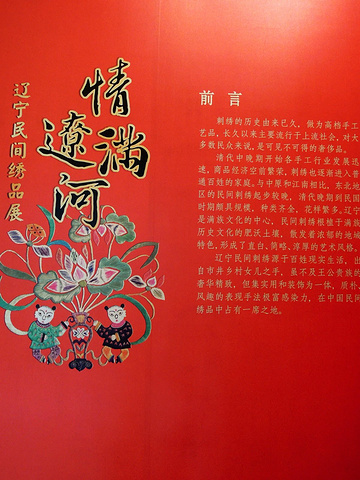 情满
遼河
辽宁民间绣品展
前言
刺绣的历史由来已久，做为高档手工
艺品，长久以来主要流行于上流社会，对大
多数民众来说，是可见不可得的奢侈品。
清代中晚期开始各手工行业发展迅
速，商品经济空前繁荣，刺绣也逐渐进入普
通百姓的家庭。与中原和江南相比，东北地
区的民间刺绣起步较晚，清代晚期到民国
时期颇具规模，种类齐全，花样繁多。辽宁
是满族文化的中心，民间刺绣根植于满族
历史文化的肥沃土壤，散发着浓郁的地域
特色，形成了直白、简略、淳厚的艺术风格。
辽宁民间刺绣源于百姓现实生活，出
自市井乡村女儿之手，虽不及王公贵族
奢华精致，但集实用和装饰为一体，质朴、
风趣的表现手法极富感染力，在中国民间
绣品中占有一席之地。